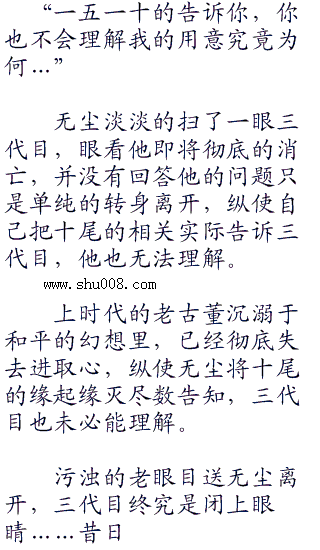 “一五一十的告诉你，你
也不会理解我的用意究竟为
何…”
无尘淡淡的扫了一眼三
代目，眼看他即将彻底的消
亡，并没有回答他的问题只
是单纯的转身离开，纵使自
己把十尾的相关实际告诉三
代目，他也无法理解。
www.shu008.com
上时代的老古董沉溺于
和平的幻想里，已经彻底失
去进取心，纵使无尘将十尾
的缘起缘灭尽数告知，三代
目也未必能理解。
污浊的老眼目送无尘离
开，三代目终究是闭上眼
睛……昔日